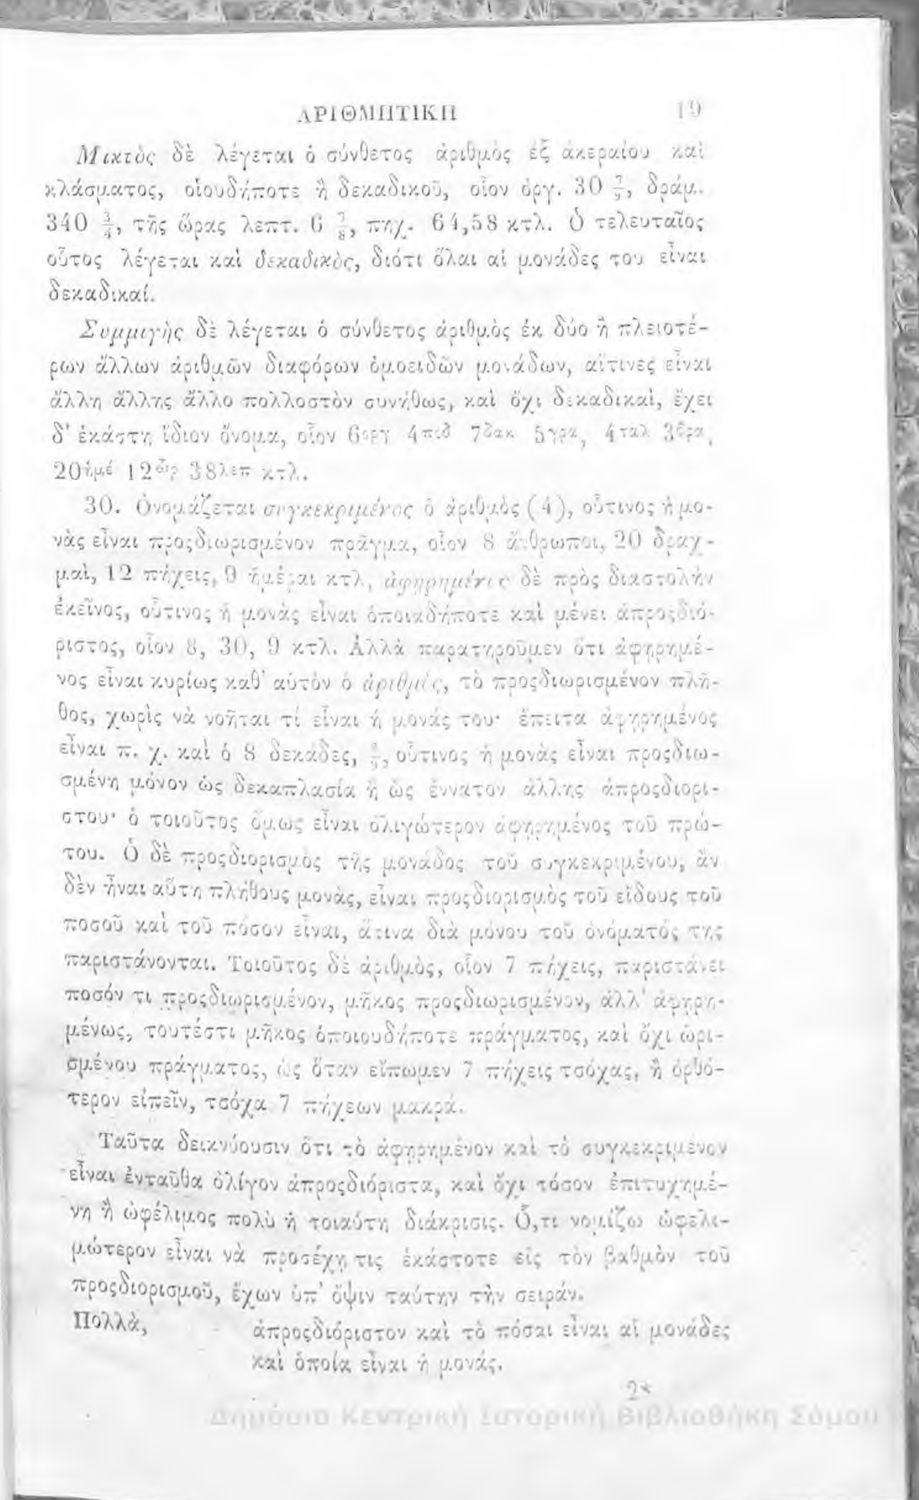 ΑΡΙΘΜΗΤΙΚΗ 19
Μικτὸς δὲ λέγεται ὁ σύνθετος ἀριθμὸς ἐξ ἀκεραίου καὶ
κλάσματος, οἱουδήποτε ἢ δεκαδικοῦ, οἷον ὀργ. 30 δράμ.
340 3/4, τῆς ὥρας λεπτ. 6 πηχ. 64,58 κτλ. Ὁ τελευταῖος
οὗτος λέγεται καὶ δεκαδικὸς, διότι ὅλαι αἱ μονάδες του εἶναι
δεκαδικαί.
Συμμιγὴς δὲ λέγεται ὁ σύνθετος ἀριθμὸς ἐκ δύο ἢ πλειοτέ-
ρων ἄλλων ἀριθμῶν διαφόρων ὁμοειδῶν μονάδων, αἵτινες εἶναι
ἄλλη ἄλλης ἄλλο πολλοστὸν συνήθως, καὶ ὄχι δεκαδικαὶ, ἔχει
δ' ἑκάστη ἴδιον ὄνομα, οἷον 6ὀργ 4ποδ 7δακ 5γρα, 4ταλ
20ἡμέ 12ὥρ 38λεπ κτλ.
30. Ὀνομάζεται συγκεκριμένος ὁ ἀριθμὸς (4), οὗτινος ἡ μο-
νὰς εἶναι προςδιωρισμένον πρᾶγμα, οἷον 8 ἄνθρωποι, 20 δραχ-
μαὶ, 12 πήχεις, 9 ἡμέραι κτλ, ἀφῃρημένος δὲ πρὸς διαστολὴν
ἐκεῖνος, οὗτινος ἡ μονὰς εἶναι ὁποιαδήποτε καὶ μένει ἀπροςδιό-
ριστος, οἷον 8, 30, 9 κτλ. Ἀλλὰ παρατηροῦμεν ὅτι ἀφῃρημέ-
νος εἶναι κυρίως καθ' αὑτὸν ὁ ἀριθμὸς, τὸ προςδιωρισμένον πλῆ-
θος, χωρὶς νὰ νοῆται τί εἶναι ἡ μονάς του· ἔπειτα ἀφῃρημένος
εἶναι π. χ. καὶ ὁ 8 δεκάδες, οὗτινος ἡ μονὰς εἶναι προςδιω-
σμένη μόνον ὡς δεκαπλασία ἢ ὡς ἔννατον ἄλλης ἀπροςδιορί-
στου· ὁ τοιοῦτος ὅμως εἶναι ὀλιγώτερον ἀφῃρημένος τοῦ πρώ-
του. Ὁ δὲ προςδιορισμὸς τῆς μονάδος τοῦ συγκεκριμένου, ἂν
δὲν ἦναι αὕτη πλήθους μονὰς, εἶναι προςδιορισμὸς τοῦ εἴδους τοῦ
ποσοῦ καὶ τοῦ πόσον εἶναι, ἅτινα διὰ μόνου τοῦ ὀνόματός της
παριστάνονται. Τοιοῦτος δὲ ἀριθμὸς, οἷον 7 πήχεις, παριστάνει
ποσόν τι προςδιωρισμένον, μῆκος προςδιωρισμένον, ἀλλ' ἀφῃρη-
μένως, τουτέστι μῆκος ὁποιουδήποτε πράγματος, καὶ ὄχι ὡρι-
σμένου πράγματος, ὡς ὅταν εἴπωμεν 7 πήχεις τσόχας, ἢ ὀρθό-
τερον εἰπεῖν, τσόχα 7 πήχεων μακρά.
Ταῦτα δεικνύουσιν ὅτι τὸ ἀφῃρημένον καὶ τὸ συγκεκριμένον
εἶναι ἐνταῦθα ὀλίγον ἀπροςδιόριστα, καὶ ὄχι τόσον ἐπιτυχημέ-
νη ἢ ὠφέλιμος πολὺ ἡ τοιαύτη διάκρισις. Ὅ,τι νομίζω ὠφελι-
μώτερον εἶναι νὰ προσέχῃ τις ἑκάστοτε εἰς τὸν βαθμὸν τοῦ
προςδιορισμοῦ, ἔχων ὑπ' ὄψιν ταύτην τὴν σειράν.
Πολλὰ, ἀπροςδιόριστον καὶ τὸ πόσαι εἶναι αἱ μονάδες
καὶ ὁποία εἶναι ἡ μονάς.
2*
Δημόσια Κεντρική Ιστορική Βιβλιοθήκη Σάμου